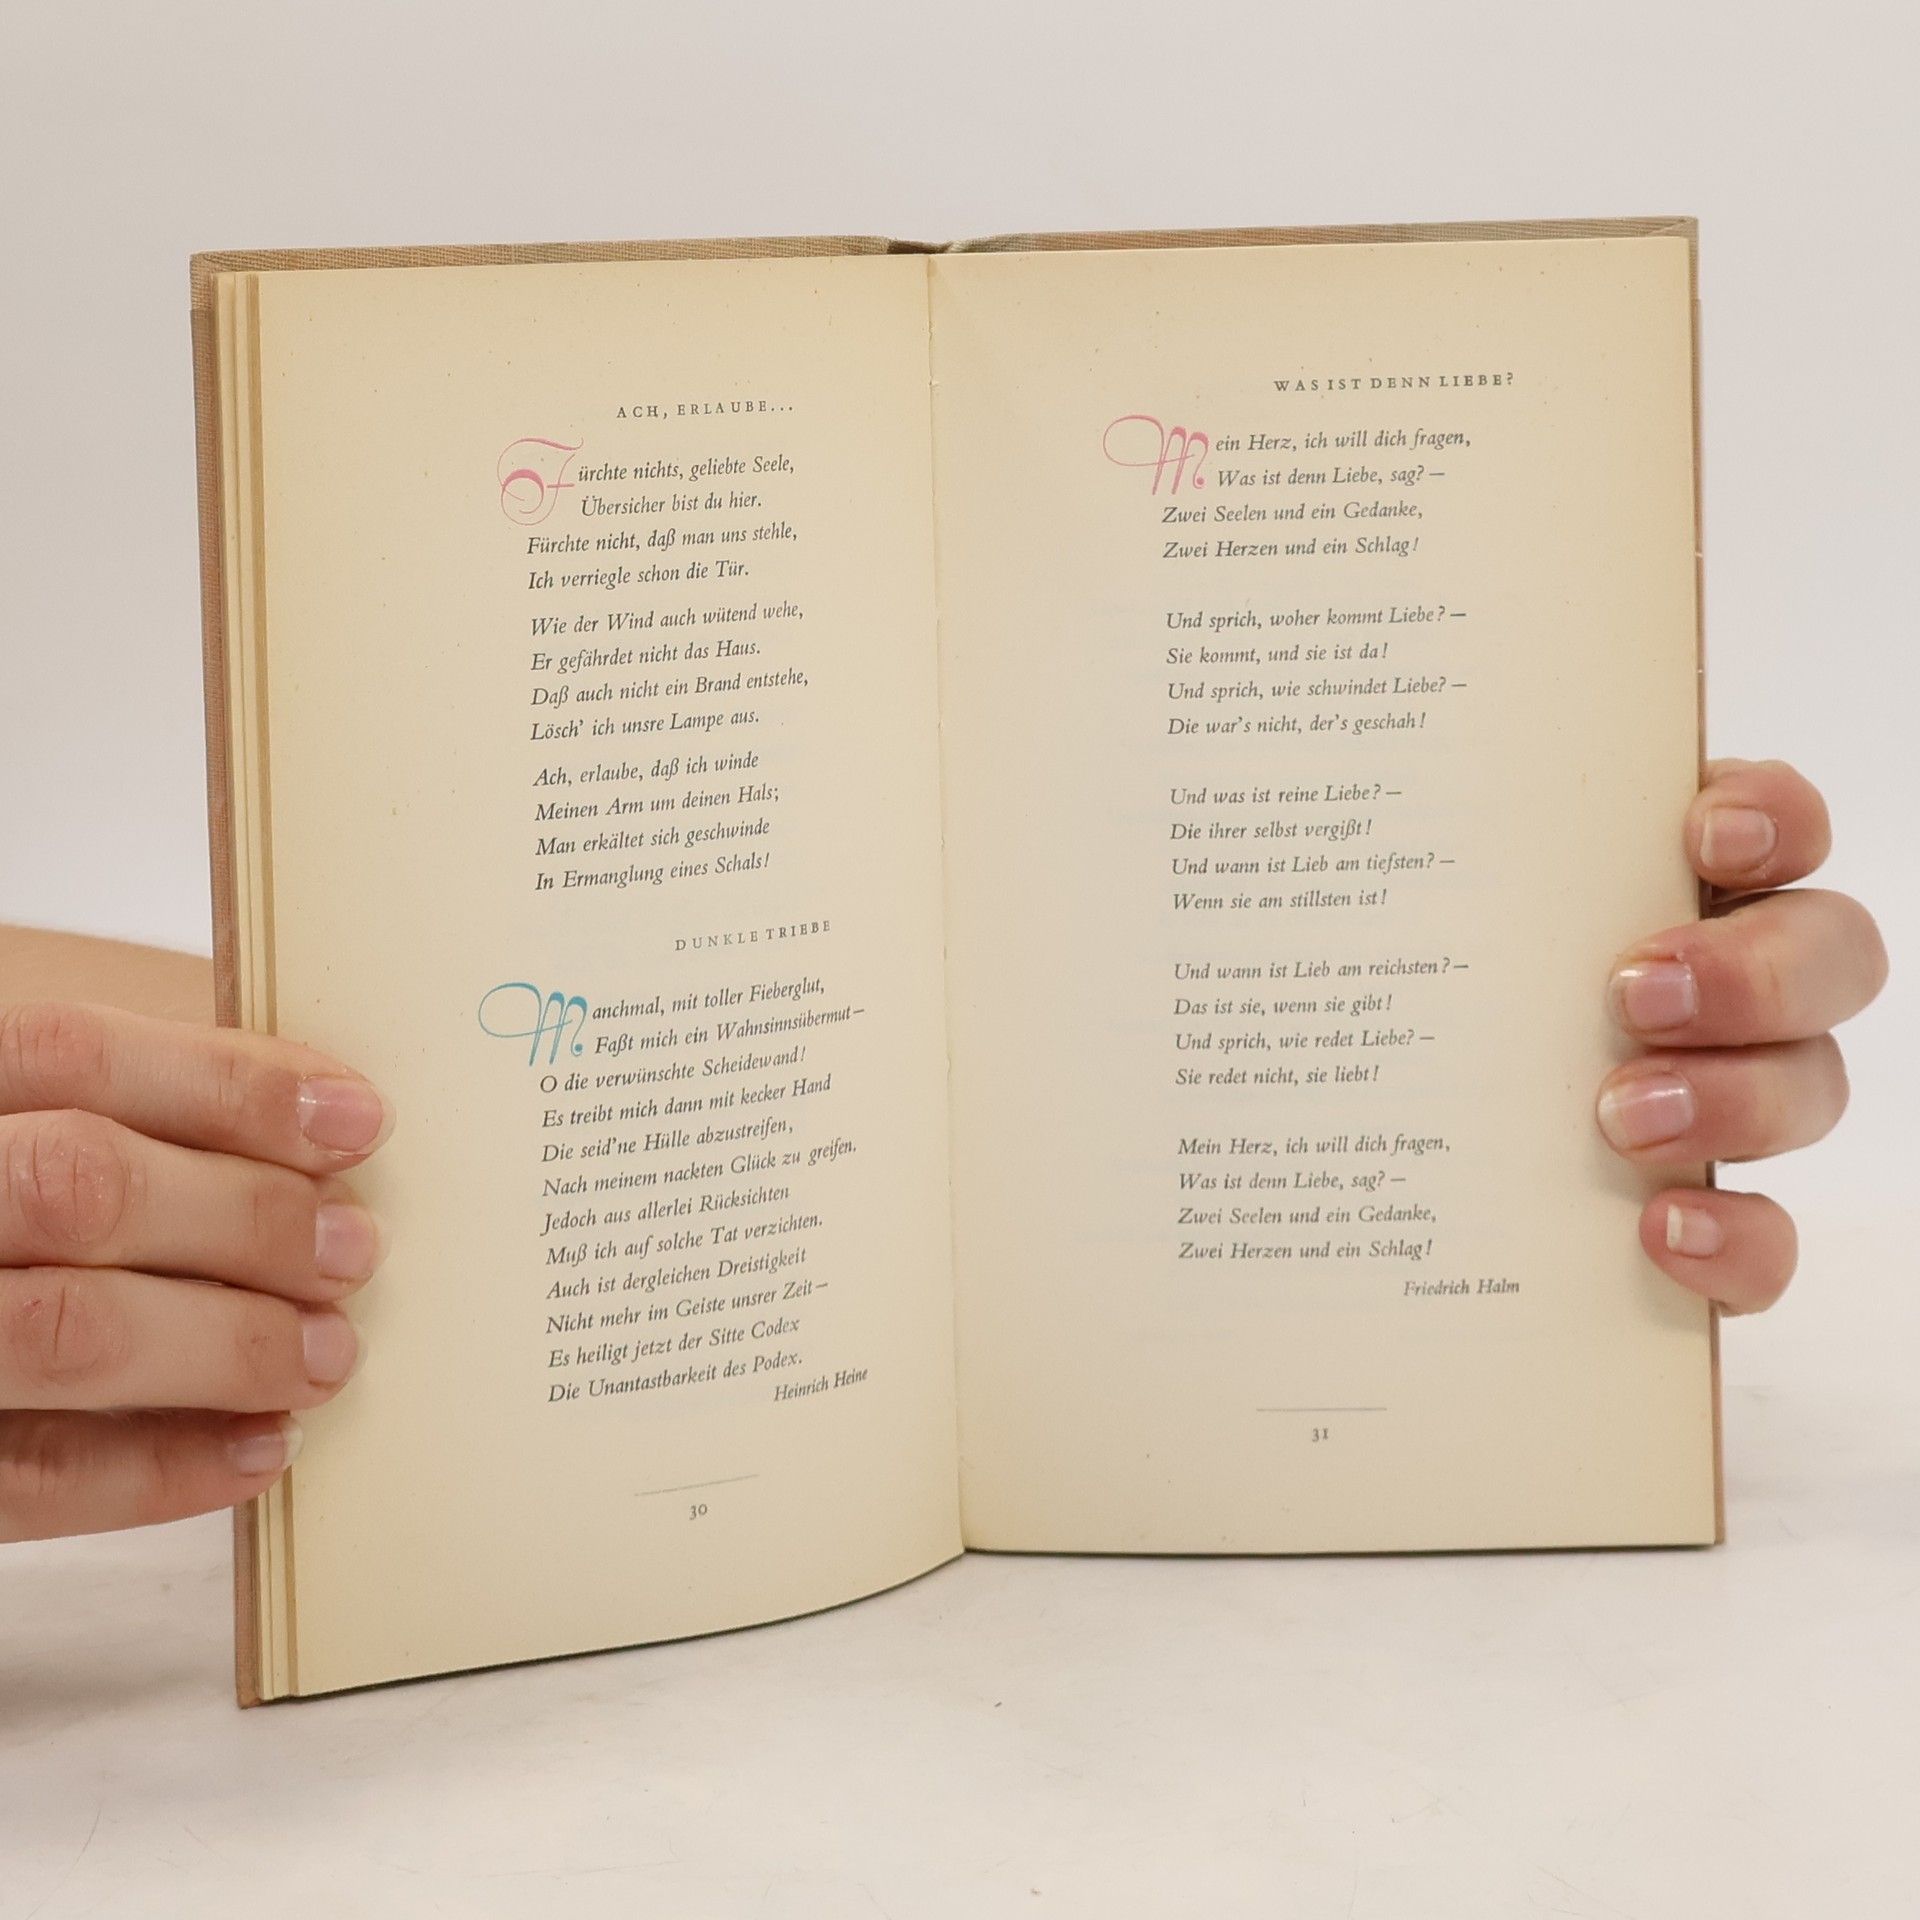 ACH, ERLAUBE...
Fürchte nichts, geliebte Seele,
Übersicher bist du hier.
Fürchte nicht, daß man uns stehle,
Ich verriegle schon die Tür.
Wie der Wind auch wütend wehe,
Er gefährdet nicht das Haus.
Daß auch nicht ein Brand entstehe,
Lösch' ich unsre Lampe aus.
Ach, erlaube, daß ich winde
Meinen Arm um deinen Hals;
Man erkältet sich geschwinde
In Ermanglung eines Schals!
DUNKLE TRIEBE
Manchmal, mit toller Fieberglut,
Faßt mich ein Wahnsinnsübermut—
O die verwünschte Scheidewand!
Es treibt mich dann mit kecker Hand
Die seid'ne Hülle abzustreifen,
Nach meinem nackten Glück zu greifen.
Jedoch aus allerlei Rücksichten
Muß ich auf solche Tat verzichten.
Auch ist dergleichen Dreistigkeit
Nicht mehr im Geiste unsrer Zeit—
Es heiligt jetzt der Sitte Codex
Die Unantastbarkeit des Podex.
Heinrich Heine
30
WAS IST DENN LIEBE?
Mein Herz, ich will dich fragen,
Was ist denn Liebe, sag? —
Zwei Seelen und ein Gedanke,
Zwei Herzen und ein Schlag!
Und sprich, woher kommt Liebe? —
Sie kommt, und sie ist da!
Und sprich, wie schwindet Liebe? —
Die war's nicht, der's geschah!
Und was ist reine Liebe? —
Die ihrer selbst vergißt!
Und wann ist Lieb am tiefsten? —
Wenn sie am stillsten ist!
Und wann ist Lieb am reichsten? —
Das ist sie, wenn sie gibt!
Und sprich, wie redet Liebe? —
Sie redet nicht, sie liebt!
Mein Herz, ich will dich fragen,
Was ist denn Liebe, sag? —
Zwei Seelen und ein Gedanke,
Zwei Herzen und ein Schlag!
Friedrich Halm
31